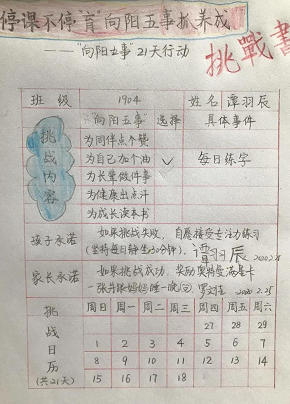 停课不停"育"向阳五事抓养成
——"向阳五事"21天行动
挑戰書
班 级 1904 姓名 潭羽辰
挑战内容 "向阳五事" 选择 具体事件
为同伴点个赞
为自己加个油 ✓ 每日练字
为长辈做件事
为健康出点汗
为成长读本书
孩子承诺 如果挑战失败,自愿接受专注力练习
(坚持每日静坐30分钟). 谭羽辰
家长承诺 如果挑战成功,奖励奥特曼满星卡
一张并跟妈妈睡一晚 2020.2.25
挑战日历(共21天) 周日 周一 周二 周三 周四 周五 周六
27 28 29
1 2 3 4 5 6 7
8 9 10 11 12 13 14
15 16 17 18